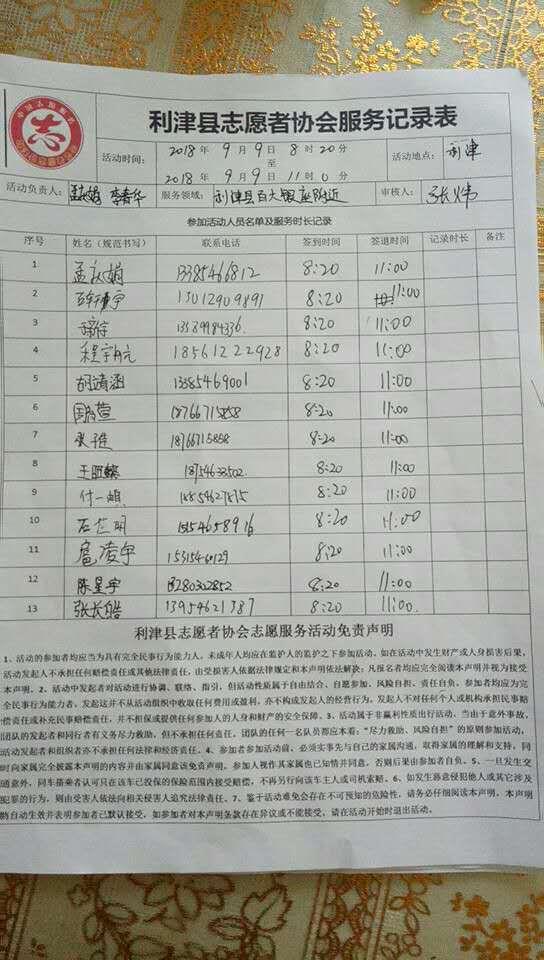 利津县志愿者协会服务记录表
活动时间： 2018 年 9 月 9 日 8 时 20 分 至 2018 年 9 月 9 日 11 时 0 分 活动地点： 利津
活动负责人： 服务领域： 利津县百大银座附近 审核人： 张炜
参加活动人员名单及服务时长记录
序号 姓名（规范书写） 联系电话 签到时间 签退时间 记录时长 备注
1 8:20 11:00
2 13012909891 8:20 11:00
3 13589984336. 8:20 11:00
4 18561222928 8:20 11:00
5 胡清涵 13385469001 8:20 11:00
6 18766715858 8:20 11:00
7 18766715858 8:20 11:00
8 18754633502 8:20 11:00
9 付一 8:20 11:00
10 15154658916 8:20 11:00
11 凌宇 8:20 11:00
12 陈星宇 8:20 11:00
13 张长皓 8:20 11:00
利津县志愿者协会志愿服务活动免责声明
1、活动的参加者均应当为具有完全民事行为能力人，未成年人均应在监护人的监护之下参加活动，如在活动中发生财产或人身损害后果，
活动发起人不承担任何赔偿责任或其他法律责任，由受损害人依据法律规定和本声明依法解决；凡报名者均应完全阅读本声明并视为接受
本声明。2、活动中发起者对活动进行协调、联络、指引，但活动性质属于自由结合、自愿参加、风险自担、责任自负。参加者均应为完
全民事行为能力者。发起这并不从活动组织中收取任何费用或盈利，亦不构成发起人的经营行为。发起人不对任何个人或机构承担民事赔
偿责任或补充民事赔偿责任，并不担保或提供任何参加人的人身和财产的安全保障。3、活动属于非赢利性质出行活动，当由于意外事故，
团队的发起者和同行者有义务尽力救助，但不承担任何责任。团队的任何一名队员都应本着："尽力救助、风险自担"的原则参加活动，
活动发起者和组织者亦不承担任何法律和经济责任。4、参加者参加活动前，必须实事先与自己的家庭沟通，取得家属的理解和支持，同
时向家属完全披露本声明的内容并由家属同意该免责声明。参加人视作其家属也已知情并同意，否则后果由参加者自负。5、一旦发生交
通意外，同车搭乘者认可只在该车已投保的保险范围内接受赔偿，不再另行向该车主人或司机索赔。6、如发生恶意侵犯他人或其它涉及
犯罪的行为，则由受害人依法向相关侵害人追究法律责任。7、鉴于活动难免会存在不可预知的危险性，请务必仔细阅读本声明。本声明
将自动生效并表明参加者已默认接受，如参加者对本声明条款存在异议或不能接受，请在活动开始时退出活动。